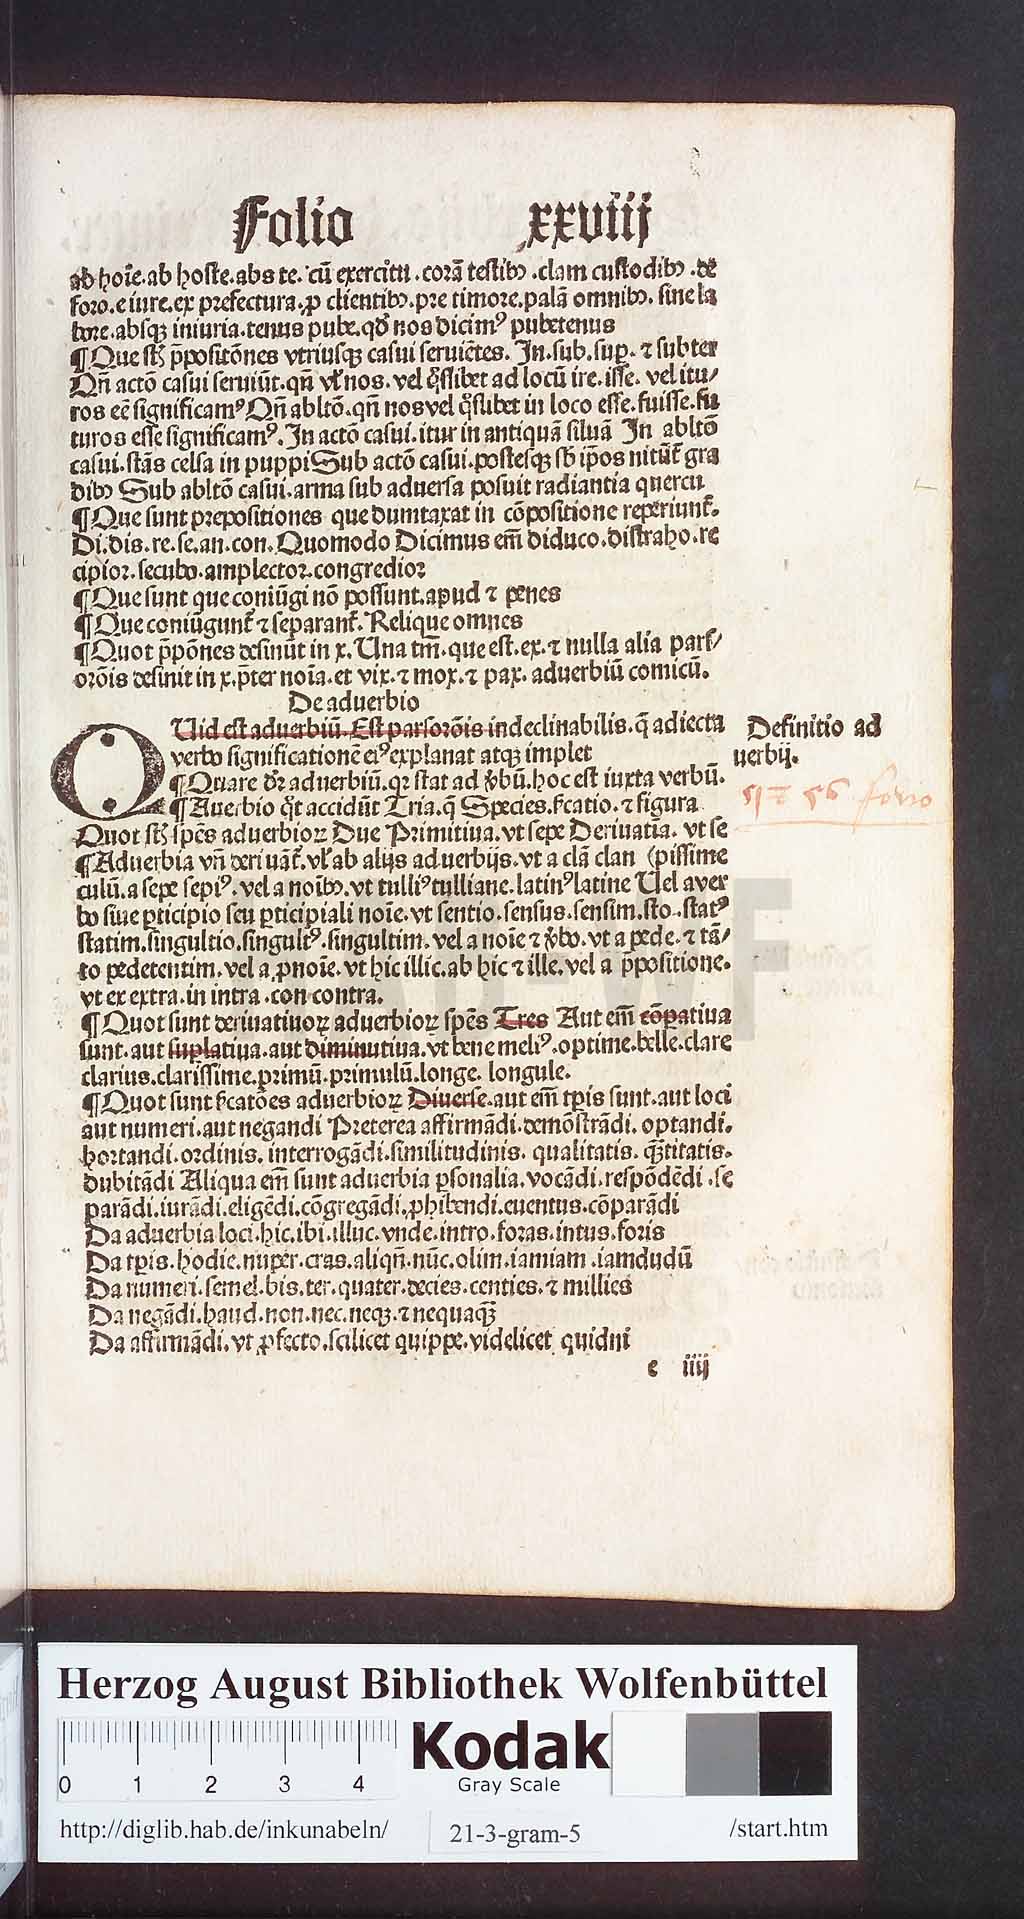 Folio xxviij
ab hoīe.ab hoste.abs te.cū exercitu.corā testibꝰ.clam custodibꝫ.de
foro.e iure.ex prefectura.ꝓ clientibꝫ.pre timore.palā omnibꝫ.sine la
bore.absqꝫ iniuria.tenus pube.qđ nos dicimꝰ pubetenus
¶Que sūt p̄positōnes vtriusqꝫ casui seruiētes. In.sub.suꝑ.⁊ subter
Qn̄ actō casui seruiūt.qn̄ vl̕ nos.vel q̄slibet ad locū ire.isse.vel itu/
ros eē significamꝰ Qn̄ abltō.qn̄ nos vel q̄slibet in loco esse.fuisse.fu
turos esse significamꝰ.In actō casui.itur in antiquā siluā In abltō
casui.stās celsa in puppi Sub actō casui.postesqꝫ sb̄ ip̄os nitūt̄ gra
dibꝫ Sub abltō casui.arma sub aduersa posuit radiantia quercu
¶Que sunt prepositiones que dumtaxat in cōpositione reperiunt̄.
Di.dis.re.se.an.con.Quomodo Dicimus em̄ diduco.distraho.re
cipior.secubo.amplector.congredior
¶Que sunt que coniūgi nō possunt.apud ⁊ penes
¶Que coniūgunt̄ ⁊ separant̄.Relique omnes
¶Quot p̄pōnes desinūt in x.Una tm̄.que est.ex.⁊ nulla alia pars/
orōis desinit in x.p̄ter noīa.et vix.⁊ mox.⁊ pax.aduerbiū comicū.
De aduerbio
QUid est aduerbiū.Est pars orōis indeclinabilis.q̄ adiecta
verbo significationē eiꝰ explanat atqꝫ implet
¶Quare dr̄ aduerbiū.qꝛ stat ad v̄bū.hoc est iuxta verbū.
¶Auerbio q̊t accidūt Tria.q̄ Species.fcatio.⁊ figura
Quot sūt sp̄es aduerbioꝝ Due Primitiua.vt sepe Deriuatīa.vt se
¶Aduerbia vn̄ deriuāt̄.vl̕ ab alijs aduerbijs.vt a clā clan (pissime
culū.a sepe sepiꝰ.vel a noībꝫ.vt tulliꝰ tulliane.latinꝰ latine Uel a ver
bo siue ꝑticipio seu ꝑticipiali noīe.vt sentio.sensus.sensim.sto.statꝰ
statim.singultio.singultꝰ.singultim.vel a noīe ⁊ v̄bo.vt a pede.⁊ tā/
to pedetentim.vel a ꝓnoīe.vt hic illic.ab hic ⁊ ille.vel a p̄positione.
vt ex extra.in intra.con contra.
¶Quot sunt deriuatiuoꝝ aduerbioꝝ sp̄es Tres Aut em̄ cōꝑatiua
sunt.aut suplatiua.aut diminutiua.vt bene meliꝰ.optime.belle.clare
clarius.clarissime.primū.primulū.longe.longule.
¶Quot sunt fcatōes aduerbioꝝ Diuerse.aut em̄ tꝑis sunt.aut loci
aut numeri.aut negandi Preterea affirmādi.demōstrādi.optandi.
hortandi.ordinis.interrogādi.similitudinis.qualitatis.q̄titatis.
dubitādi Aliqua em̄ sunt aduerbia ꝑsonalia.vocādi.respōdēdi.se
parādi.iurādi.eligēdi.cōgregādi.ꝓhibendi.euentus.cōparādi
Da aduerbia loci.hic.ibi.illuc.vnde.intro.foras.intus.foris
Da tꝑis.hodie.nuper.cras.aliqn̄.nūc.olim.iamiam.iamdudū
Da numeri.semel.bis.ter.quater.decies.centies.⁊ millies
Da negādi.haud.non.nec.neqꝫ.⁊ nequaq̄
Da affirmādi.vt ꝓfecto.scilicet quippe.videlicet quidni
e iiij
Definitio ad
uerbij.
Herzog August Bibliothek Wolfenbüttel
0 1 2 3 4
Kodak
Gray Scale
http://diglib.hab.de/inkunabeln/ 21-3-gram-5 /start.htm
HAB-WF